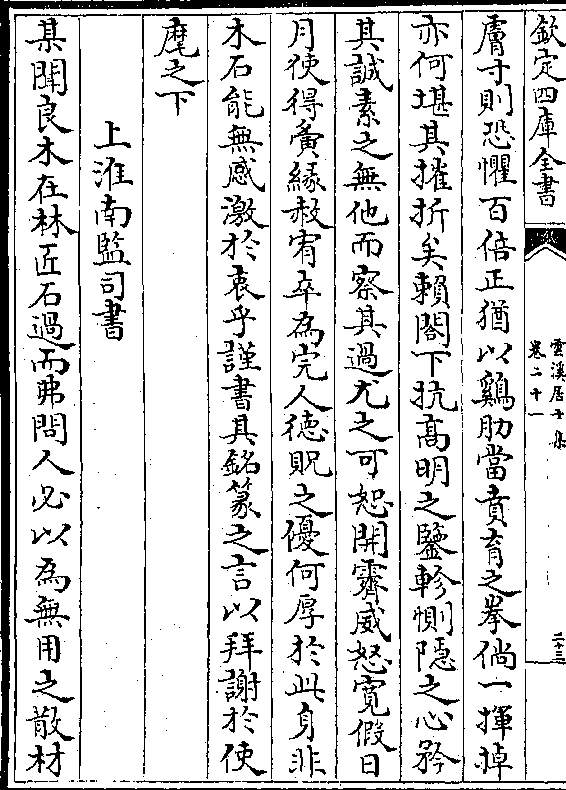 欽定四庫全書
雲溪居士集
卷二十一
二十三
膚寸則恐懼百倍正猶以鷄肋當賁育之拳倘一揮掉
亦何堪其摧折矣賴閤下抗高明之鑒軫惻隠之心矜
其誠素之無他而察其過尤之可恕開霽威怒寛假日
月使得夤緣赦宥卒為完人德貺之優何厚於此身非
木石能無感激於衷乎謹書具銘篆之言以拜謝於使
麾之下
上淮南監司書
某聞良木在林匠石過而弗問人必以為無用之散材